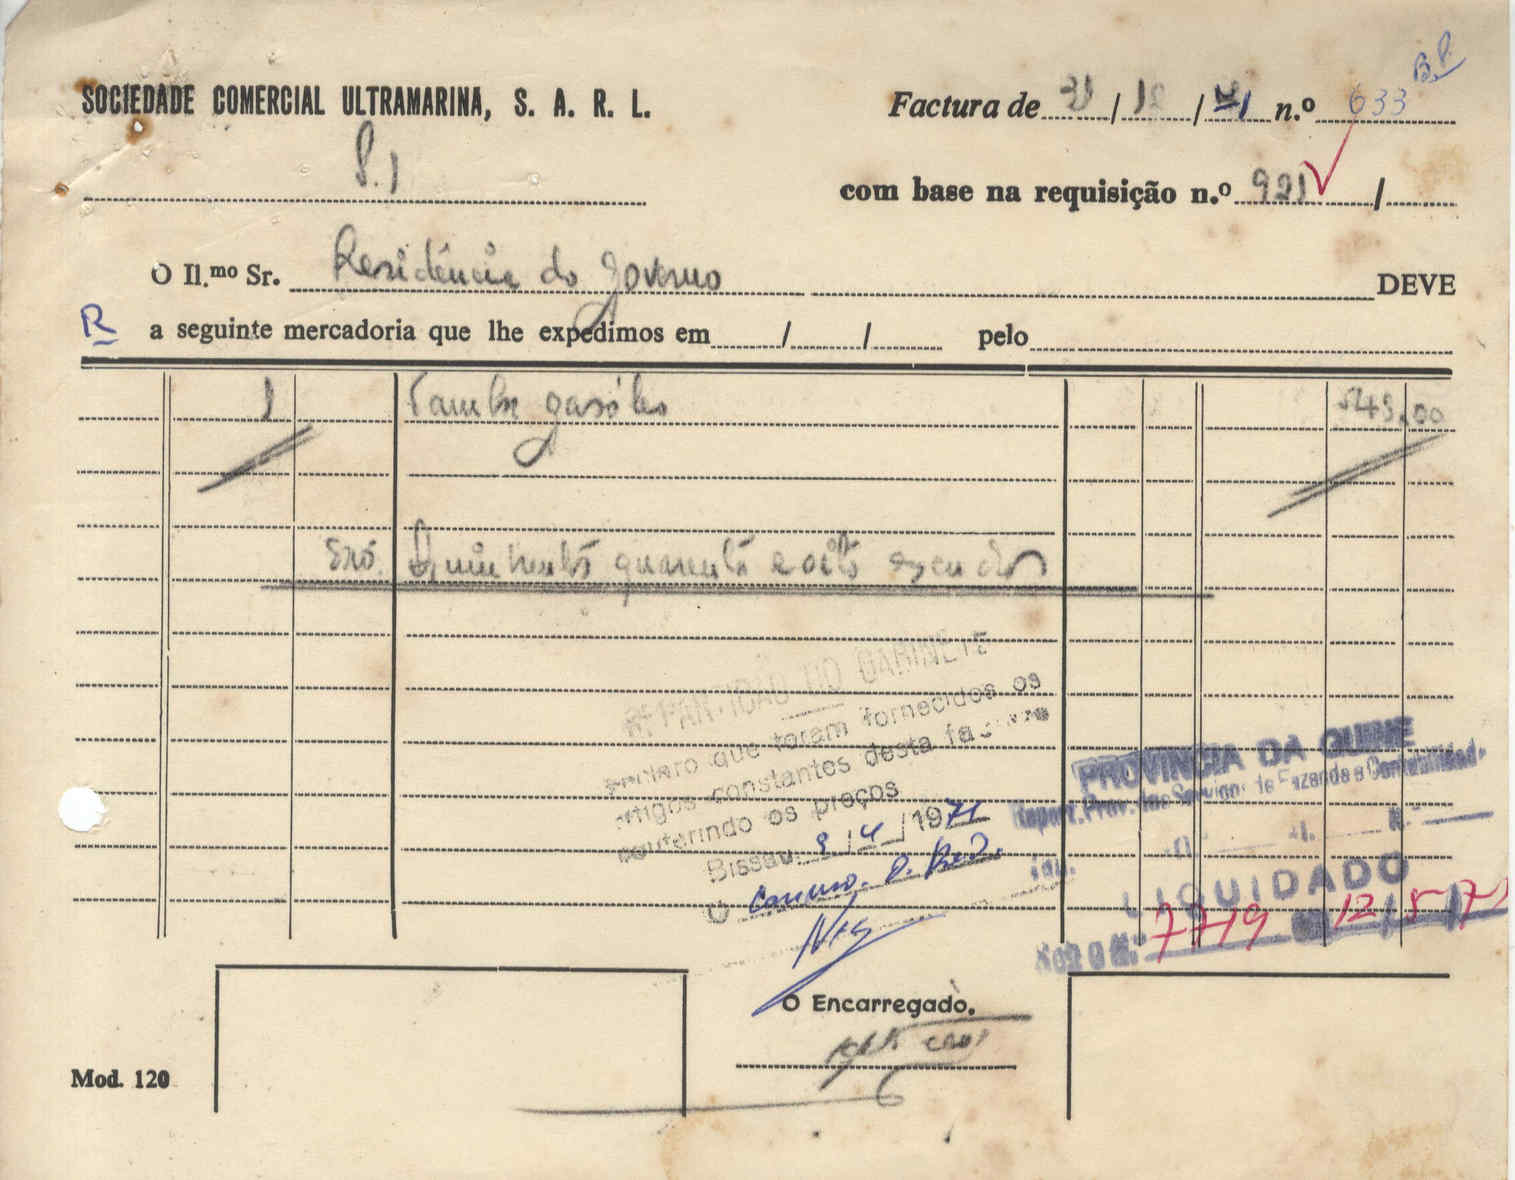 B.P.
SOCIEDADE COMERCIAL ULTRAMARINA, S. A. R. L.
Factura de 31/12/71 n.º 633
P. 1
com base na requisição n.º 921 /
O Il.mo Sr. Residência do Governo DEVE
R a seguinte mercadoria que lhe expedimos em / / pelo
1 Tambor gasóleo 548.00
São: Quinhentos quarenta e oito escudos
REPARTIÇÃO DO GABINETE
Declaro que foram fornecidos os
artigos constantes desta factura
conferindo os preços
Bissau, 9/4/1971
O
PROVINCIA DA GUINE
Repart. Prov. dos Serviços de Fazenda e Contabilidade
LIQUIDADO
7719 12/5/71
O Encarregado,
Mod. 120